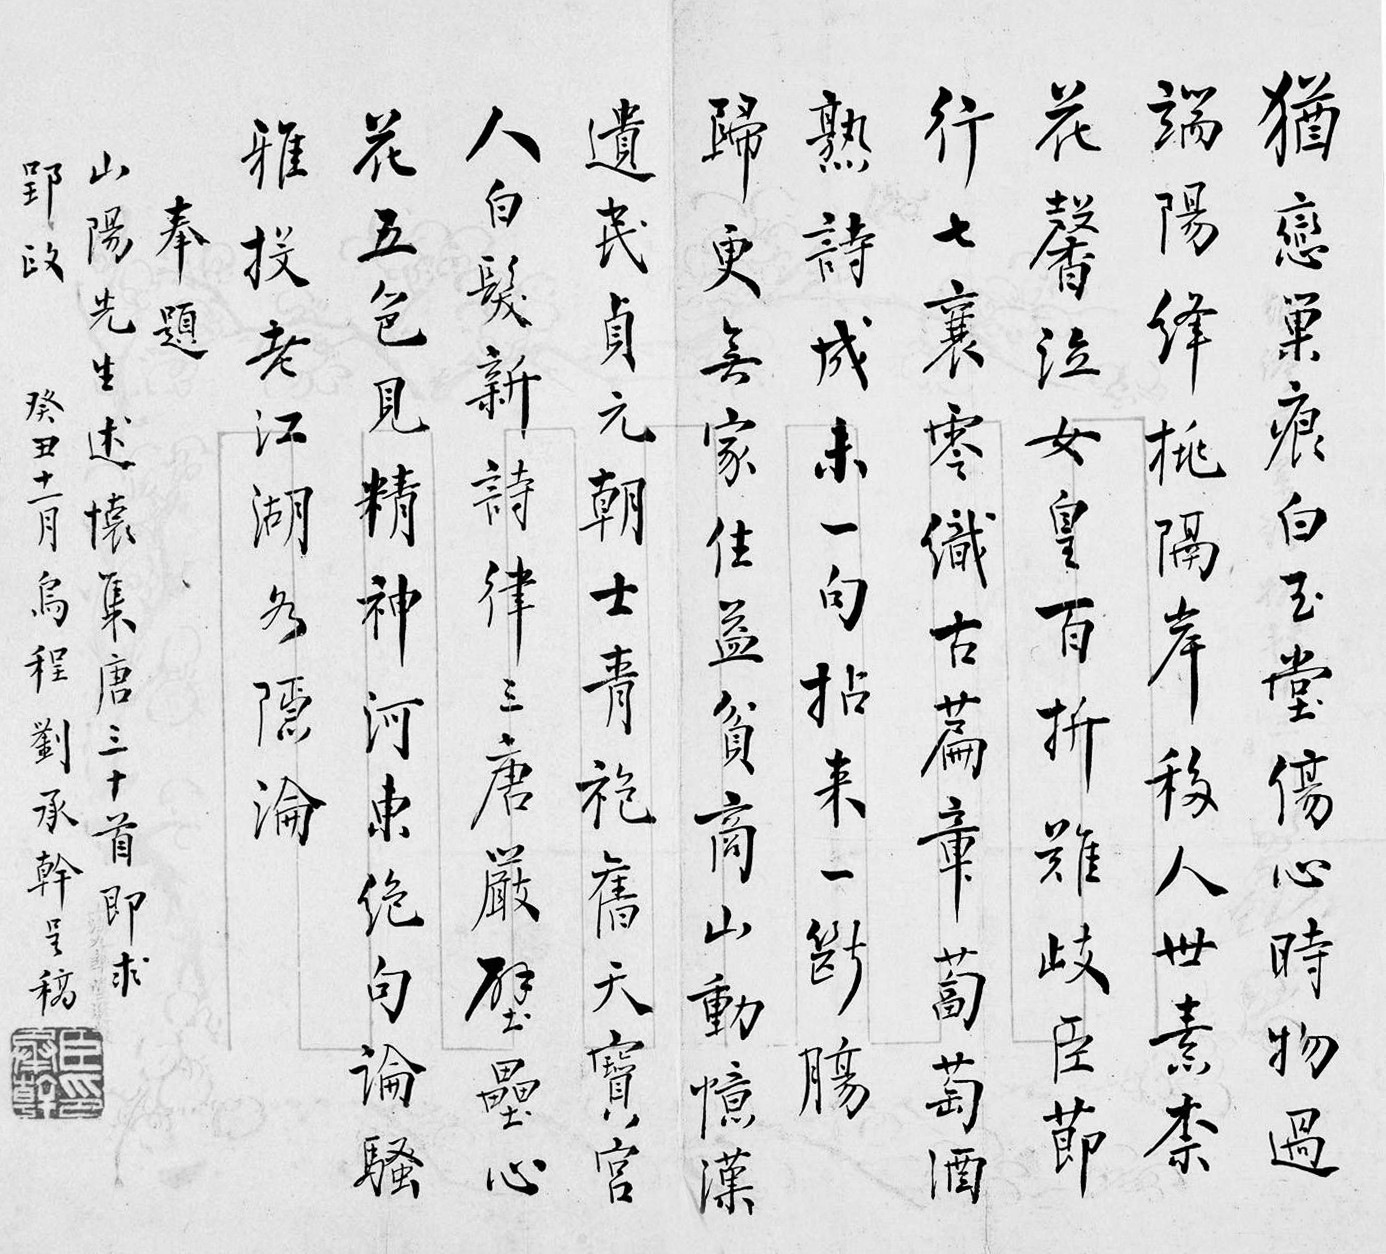 猶戀巢痕白玉堂傷心時物過
端陽絳桃隔岸移人世素柰
花馨泣女皇百折難歧臣節
行七襄零織古篇章蔔萄酒
熟詩成未一句拈来一斷腸
歸更無家住益貧商山動憶漢
遺民貞元朝士青袍舊天寶宮
人白髮新詩律三唐嚴壁壘心
花五色見精神河東絶句論騷
雅投老江湖各隱淪
奉題
山陽先生述懷集唐三十首即求
郢政 癸丑十一月烏程劉承幹呈稿
臣印承幹